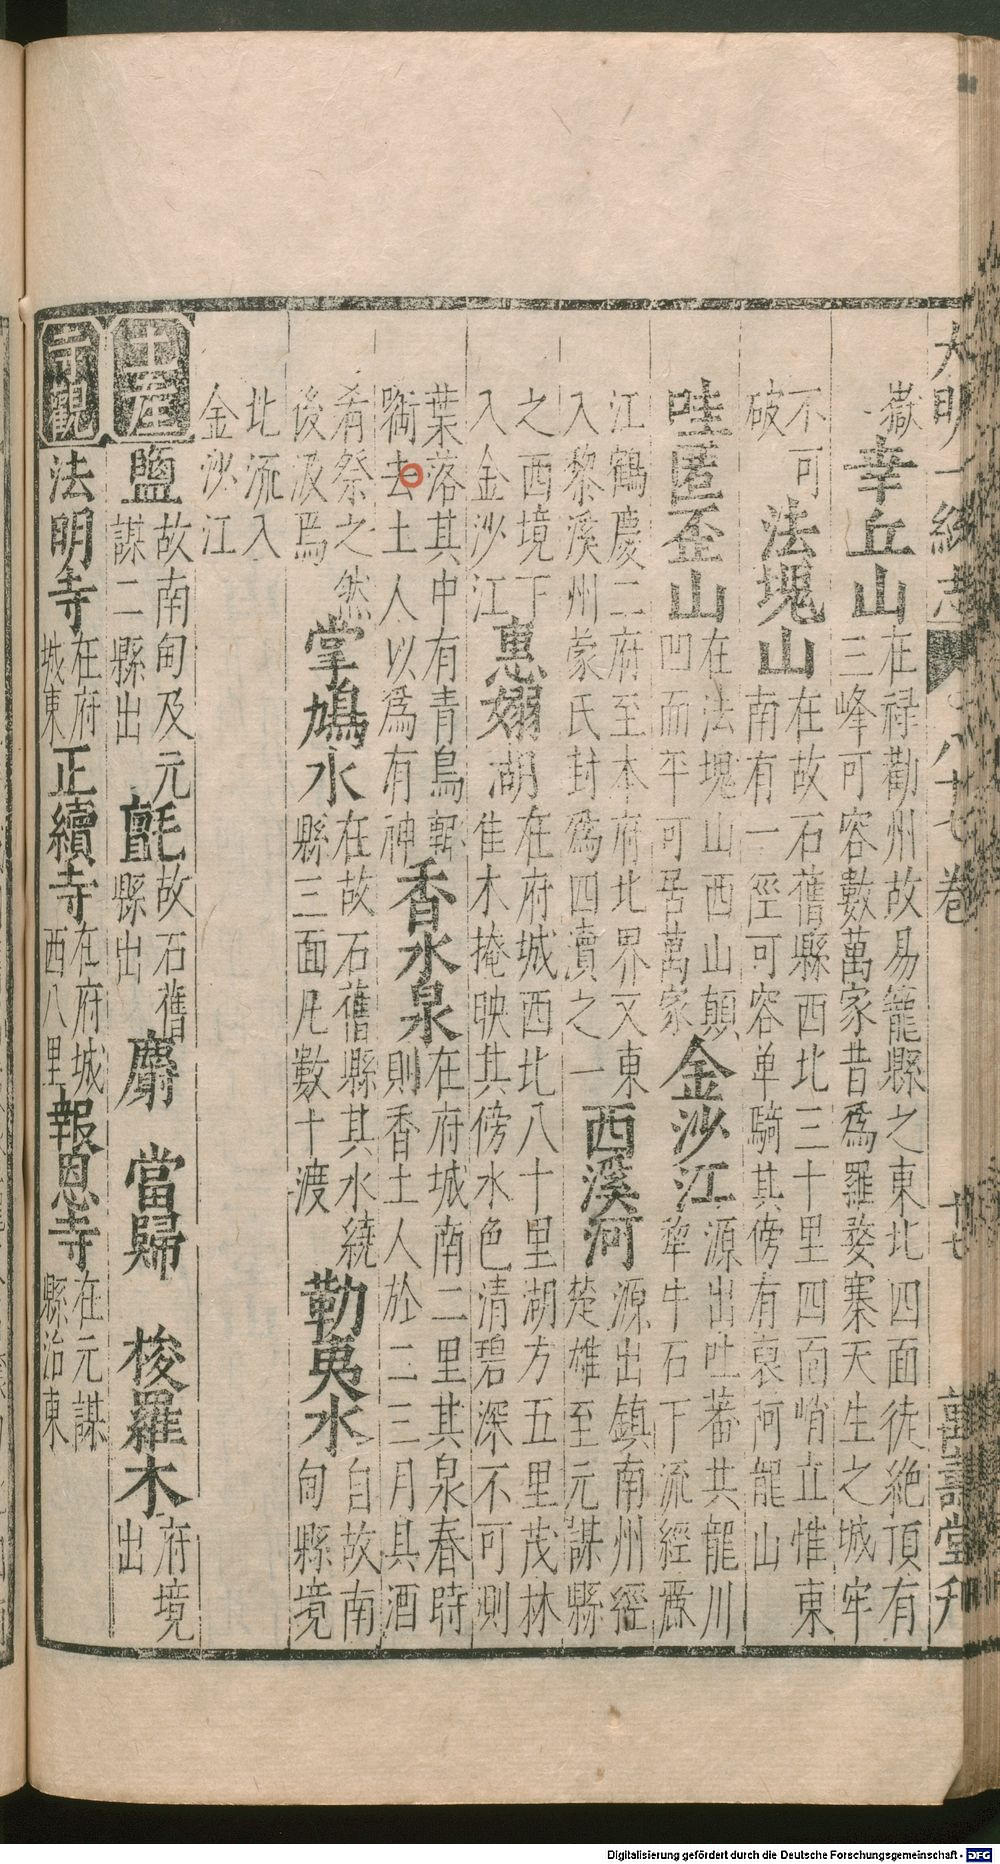 大明一統志 八十七卷 十七 萬壽堂刋
嶽 幸丘山 在禄勸州故易籠縣之東北四面徒絶頂有
三峰可容數萬家昔爲羅婺寨天生之城牢
不可
破 法塊山 在故石舊縣西北三十里四面峭立惟東
南有一徑可容单騎其傍有哀阿龍山
哇匿歪山 在法塊山西山顛
凹而平可居萬家 金沙江 源出吐蕃共龍川
犂牛石下流經麗
江鶴慶二府至本府北界又東
入黎溪州蒙氏封爲四瀆之一 西溪河 源出鎮南州經
楚雄至元謀縣
之西境下
入金沙江 惠嫋湖 在府城西北八十里湖方五里茂林
隹木掩映其傍水色清碧深不可測
葉落其中有青鳥輒
啣去土人以爲有神 香水泉 在府城南二里其泉春時
則香土人於二三月具酒
肴祭之然
後汲焉 掌鳩水 在故石舊縣其水繞
縣三面凡數十渡 勒夷水 自故南
甸縣境
北流入
金沙江
土産 鹽 故南甸及元
謀二縣出 氈 故石舊
縣出 麝 當歸 梭羅木 府境
出
寺觀 法明寺 在府
城東 正續寺 在府城
西八里 報恩寺 在元謀
縣治東
Digitalisierung gefördert durch die Deutsche Forschungsgemeinschaft - DFG